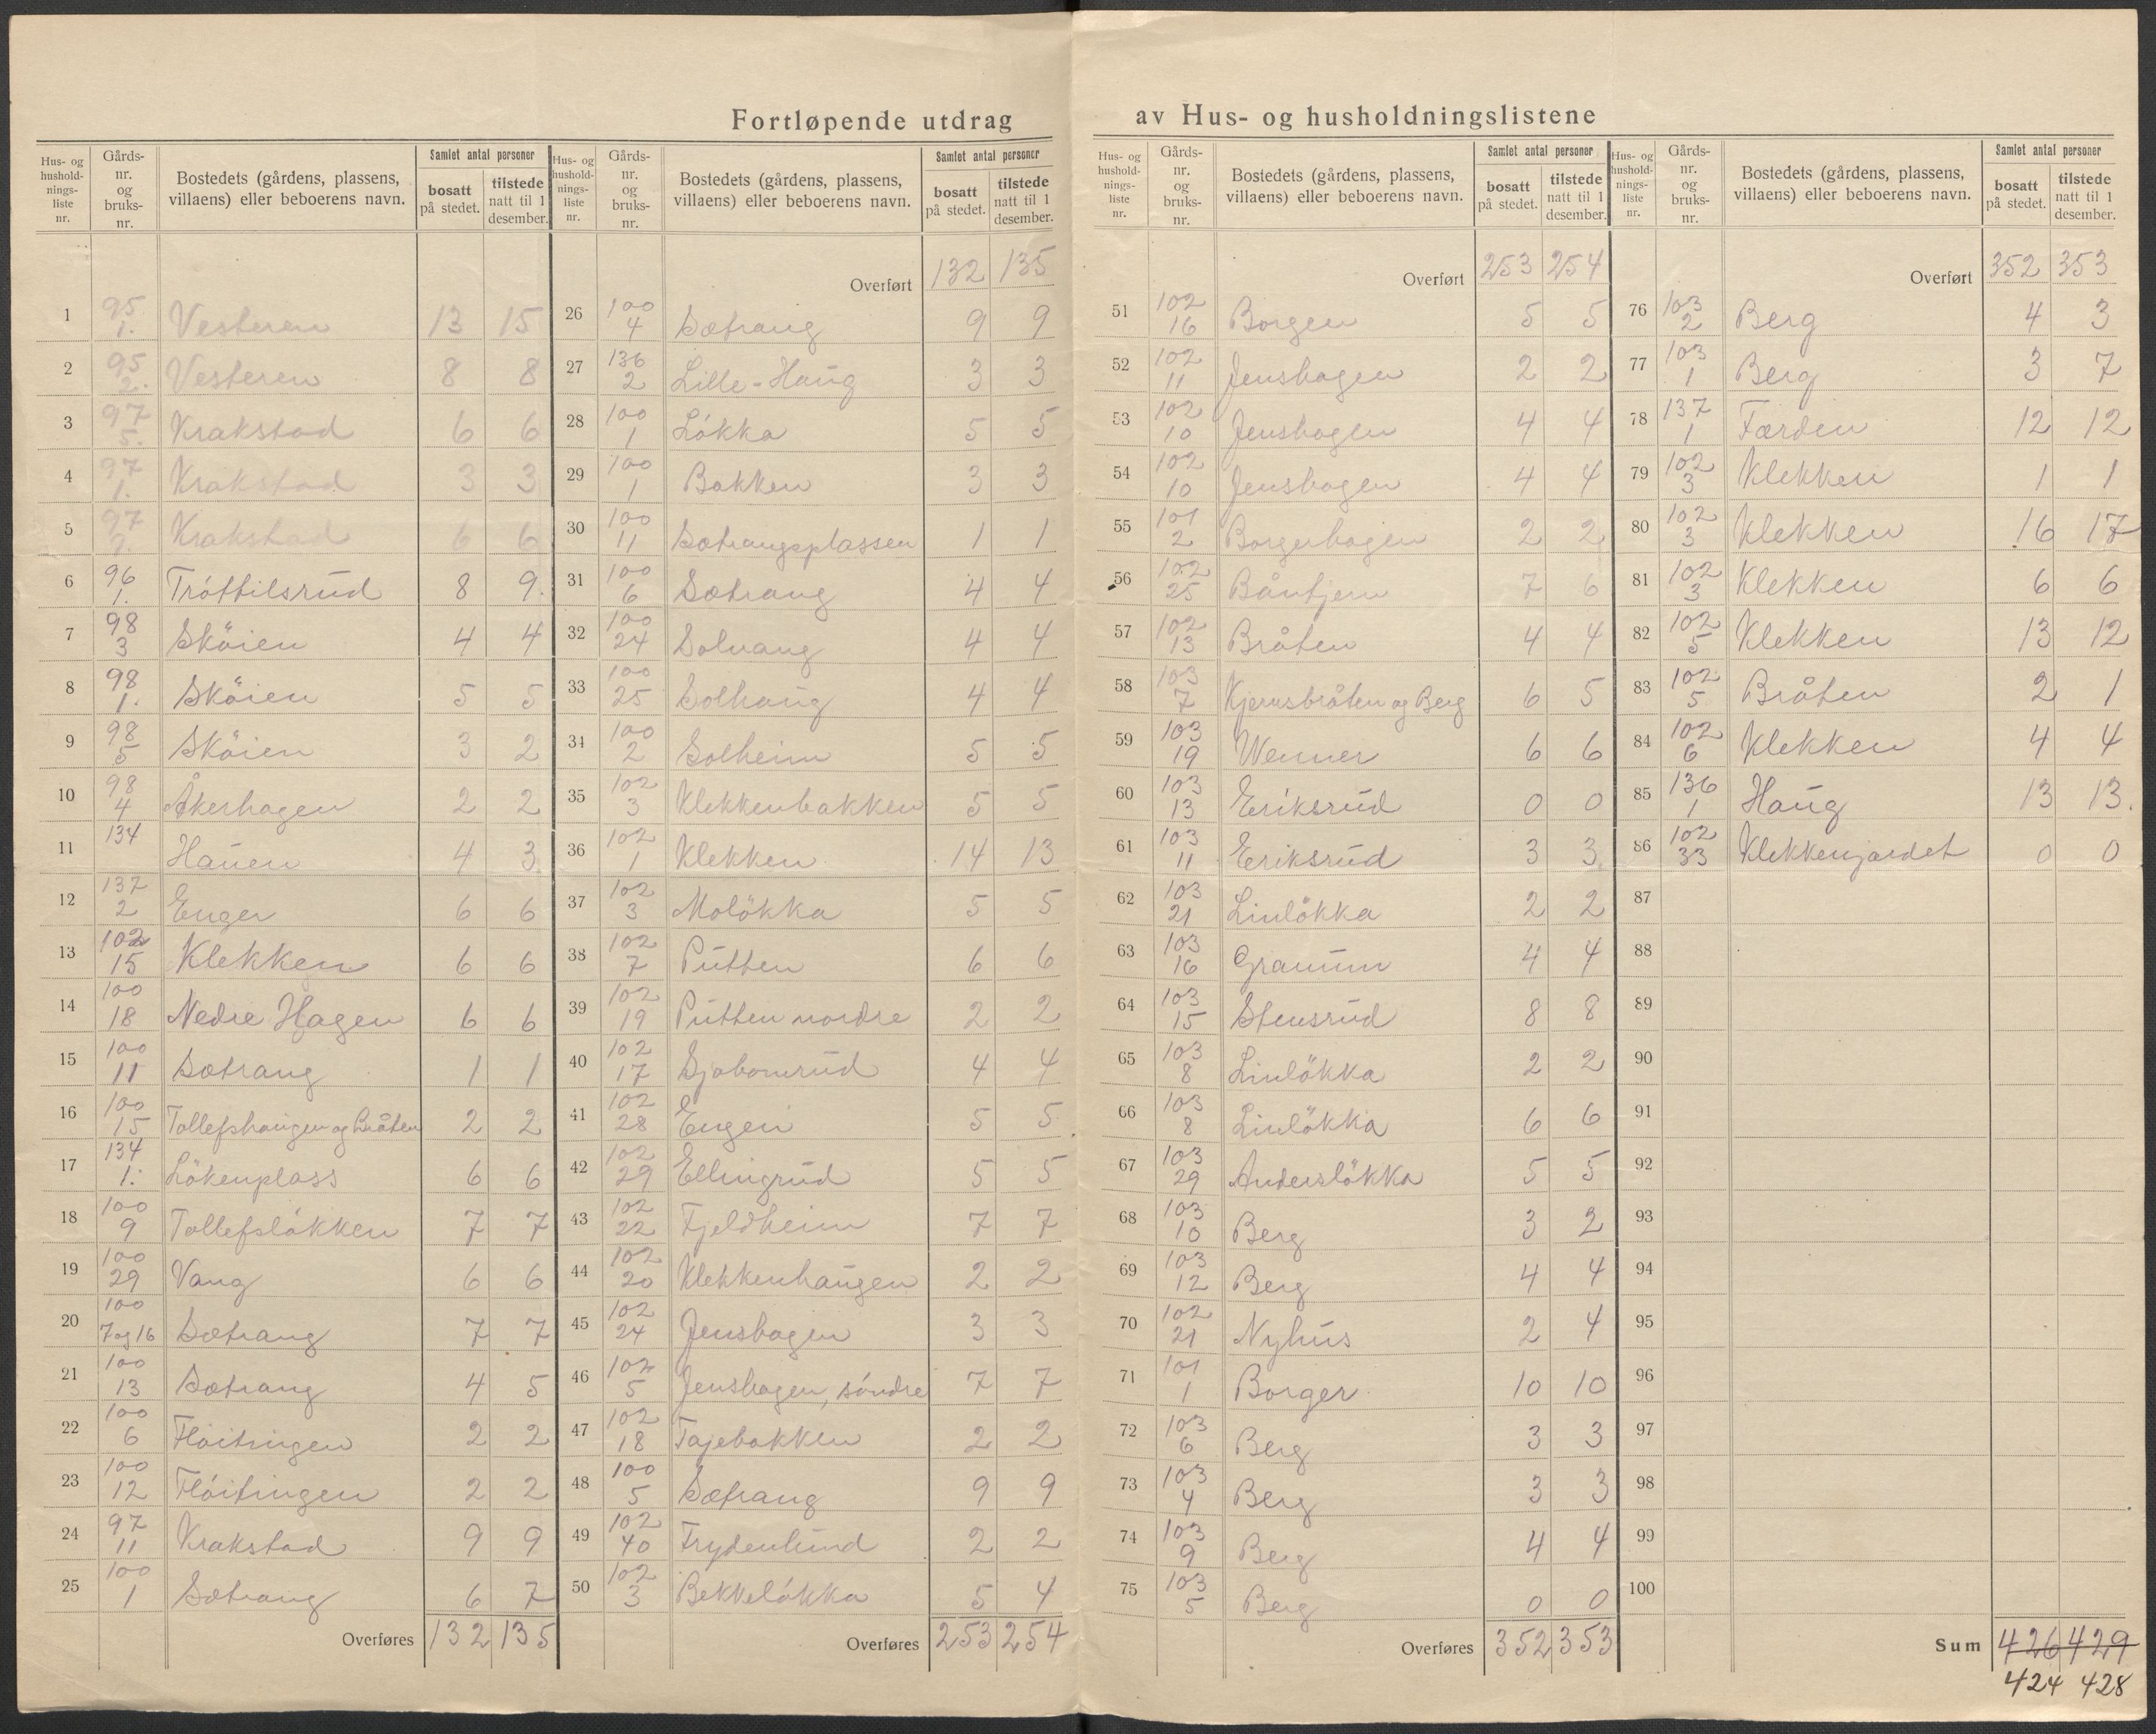 Fortløpende utdrag av Hus- og husholdningslistene
Hus- og hushold-nings-liste nr. | Gårds-nr. og bruks-nr. | Bostedets (gårdens, plassens, villaens) eller beboerens navn. | Samlet antal personer | bosatt på stedet. | tilstede natt til 1 desember.
1 95 1. Vesteren 13 15
2 95 2. Vesteren 8 8
3 97 5. Krakstad 6 6
4 97 1. Krakstad 3 3
5 97 Krakstad 6 6
6 96 1. Tróttilsrud 8 9.
7 98 3 Sköien 4 4
8 98 1. Sköien 5 5
9 98 5 Sköien 3 2
10 98 4 Åkerhagen 2 2
11 134 Hauen 4 3
12 137 2 Enger 6 6
13 102 15 Klekken 6 6
14 100 18 Nedre Hagen 6 6
15 100 11 Sætrang 1 1
16 100 15 Tollefshaugen og Bråten 2 2
17 134 1. Lökenplass 6 6
18 100 9 Tollefslökken 7 7
19 100 29 Vang 6 6
20 100 7 og 16 Sætrang 7 7
21 100 13 Sætrang 4 5
22 100 6 Flöitingen 2 2
23 100 12 Flöitingen 2 2
24 97 11 Krakstad 9 9
25 100 1 Sætrang 6 7
Overføres 132 135
Hus- og hushold-nings-liste nr. | Gårds-nr. og bruks-nr. | Bostedets (gårdens, plassens, villaens) eller beboerens navn. | Samlet antal personer | bosatt på stedet. | tilstede natt til 1 desember.
Overført 132 135
26 100 4 Sætrang 9 9
27 136 2 Lille-Haug 3 3
28 100 1 Lókka 5 5
29 100 1 Bakken 3 3
30 100 11 Sætrangsplassen 1 1
31 100 6 Sætrang 4 4
32 100 24 Solvang 4 4
33 100 25 Solhaug 4 4
34 100 2 Solheim 5 5
35 102 3 Klekkenbakken 5 5
36 102 1 Klekken 14 13
37 102 3 Molökka 5 5
38 102 7 Putten 6 6
39 102 19 Putten nordre 2 2
40 102 17 Sjobomrud 4 4
41 102 28 Engen 5 5
42 102 29 Ellingrud 5 5
43 102 22 Fjeldheim 7 7
44 102 20 Klekkenhaugen 2 2
45 102 24 Jenshagen 3 3
46 102 5 Jenshagen, söndre 7 7
47 102 18 Tajebakken 2 2
48 100 5 Sætrang 9 9
49 102 40 Frydenlund 2 2
50 102 3 Bekkelókka 5 4
Overføres 253 254
Hus- og hushold-nings-liste nr. | Gårds-nr. og bruks-nr. | Bostedets (gårdens, plassens, villaens) eller beboerens navn. | Samlet antal personer | bosatt på stedet. | tilstede natt til 1 desember.
Overført 253 254
51 102 16 Borgen 5 5
52 102 11 Jenshagen 2 2
53 102 10 Jenshagen 4 4
54 102 10 Jenshagen 4 4
55 101 2 Borgerhagen 2 2
56 102 25 Båntjern 7 6
57 102 13 Bråten 4 4
58 103 7 Kjernsbråten og Berg 6 5
59 103 19 Wenner 6 6
60 103 13 Eriksrud 0 0
61 103 11 Eriksrud 3 3.
62 103 21 Linlökka 2 2
63 103 16 Granum 4 4
64 103 15 Stensrud 8 8
65 103 8 Linlökka 2 2
66 103 8 Linlökka 6 6
67 103 29 Anderslökka 5 5
68 103 10 Berg 3 2
69 103 12 Berg 4 4
70 102 21 Nyhus 2 4
71 101 1 Borger 10 10
72 103 6 Berg 3 3
73 103 4 Berg 3 3
74 103 9 Berg 4 4
75 103 5 Berg 0 0
Overføres 352 353
Hus- og hushold-nings-liste nr. | Gårds-nr. og bruks-nr. | Bostedets (gårdens, plassens, villaens) eller beboerens navn. | Samlet antal personer | bosatt på stedet. | tilstede natt til 1 desember.
Overført 352 353
76 103 2 Berg 4 3
77 103 1 Berg 3 7
78 137 1 Færden 12 12
79 102 3 Klekken 1 1
80 102 3 Klekken 16 17
81 102 3 Klekken 6 6
82 102 5 Klekken 13 12
83 102 5 Bråten 2 1
84 102 6 Klekken 4 4
85 136 1 Haug 13 13.
86 102 33 Klekkenjordet 0 0
87
88
89
90
91
92
93
94
95
96
97
98
99
100
Sum 426 429
424 428